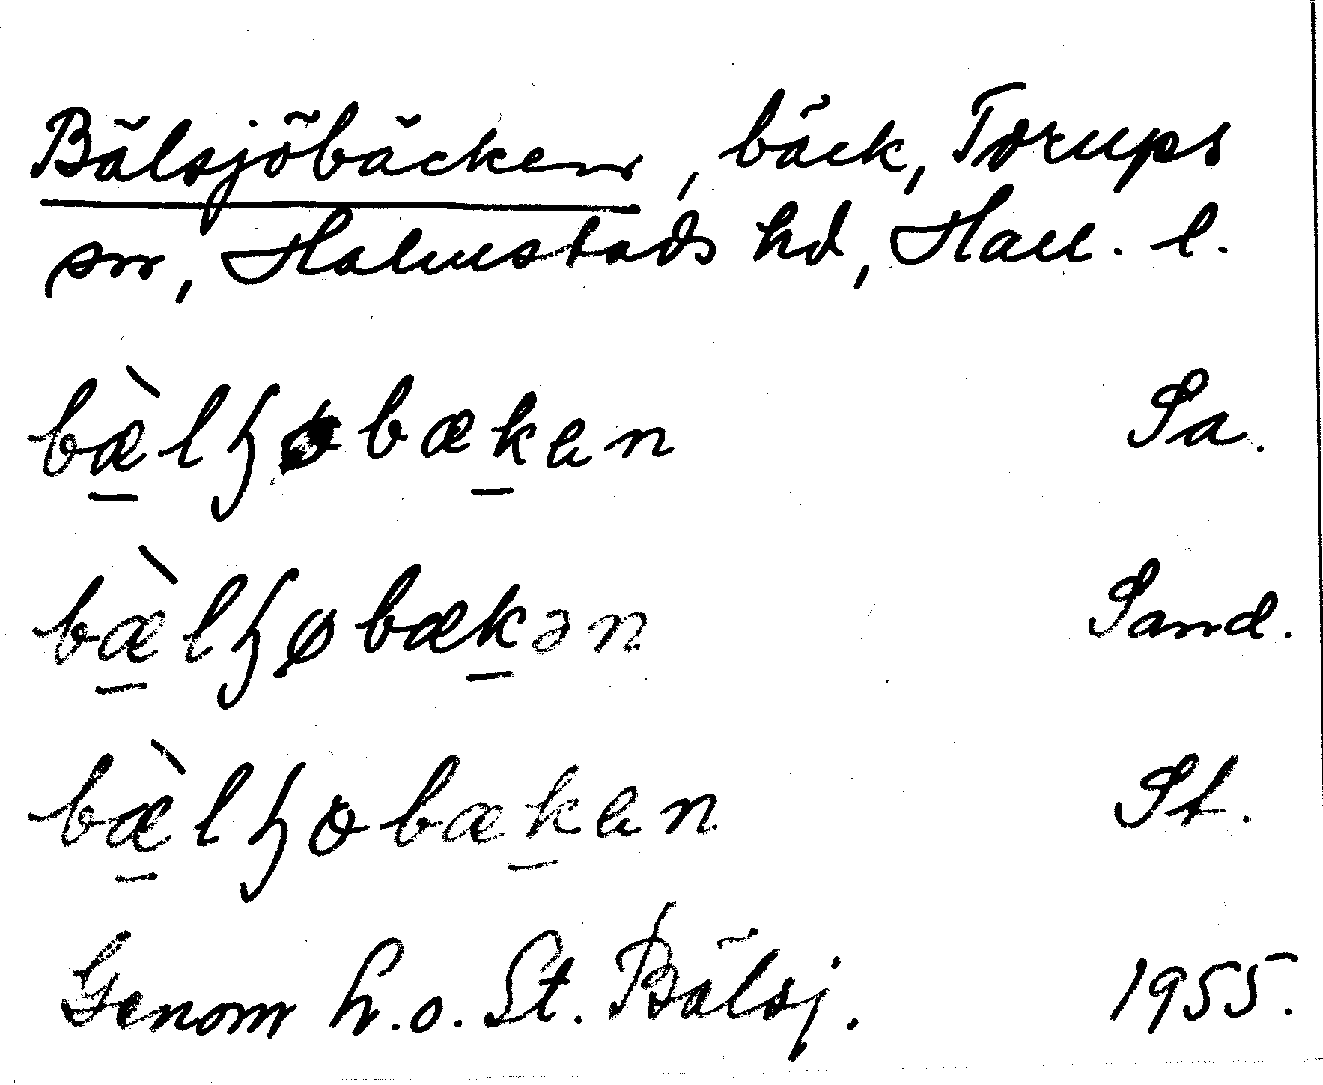 Bälsjöbäcken, bäck, Torups
sn, Halmstads hd, Hall. l.
bæ̀lɧobæken Sa.
bæ̀lɧøbækən Sand.
bæ̀lɧobæken St.
Genom L.o.St. Bälsj. 1955.